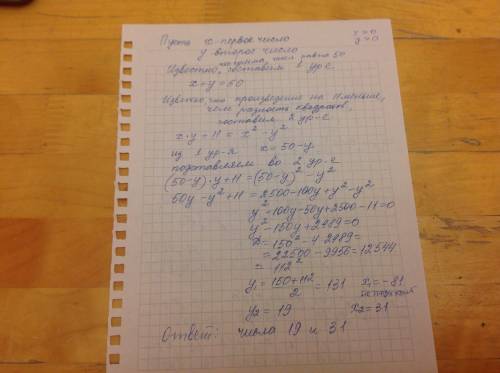 Пусть x-первое число
x>0
y>0
y второе число
Известно, что сумма чисел равна 50
составим 1 ур-е
x+y=50
Известно, что произведение на 11 меньше,
чем разность квадратов.
составим 2 ур-е
x·y+11=x²-y²
из 1 ур-я x=50-y
подставляем во 2 ур-е
(50-y)·y+11=(50-y)²-y²
50y-y²+11=2500-100y+y²-y²
y²-100y-50y+2500-11=0
y²-150y+2489=0
D=150²-4·2489=
=22500-9956=12544
=112²
y₁=150+112/2=131 x₁=-81
не подходит
y₂=19 x₂=31
Ответ: числа 19 и 31